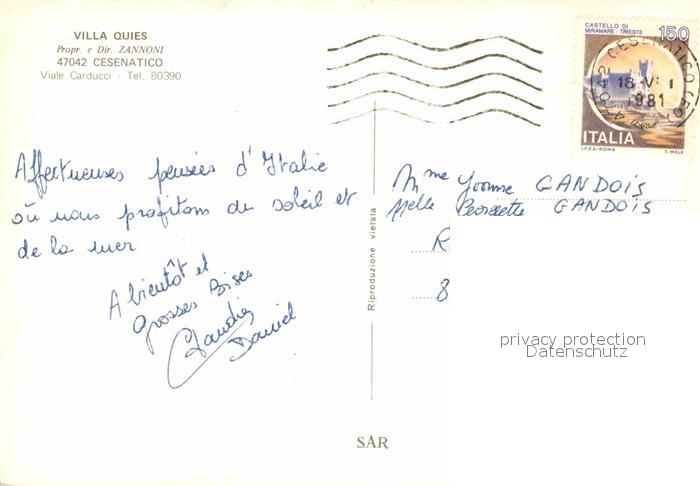 VILLA QUIES
Propr. e Dir. ZANNONI
47042 CESENATICO
Viale Carducci - Tel. 80390
CASTELLO DI
MIRAMARE - TRIESTE
150
47042 CESENATICO (FO)
18 -V: 1
1981
ITALIA
I.P.Z.S.-ROMA
T. MELE
Affectueuses pensées d'Italie
où nous profitons du soleil et
de la mer
A bientôt et
grosses Bises
Claudie
Daniel
Riproduzione vietata
Mme Yvonne GANDOIS
Melle Pierrette GANDOIS
R
8
privacy protection
Datenschutz
SAR